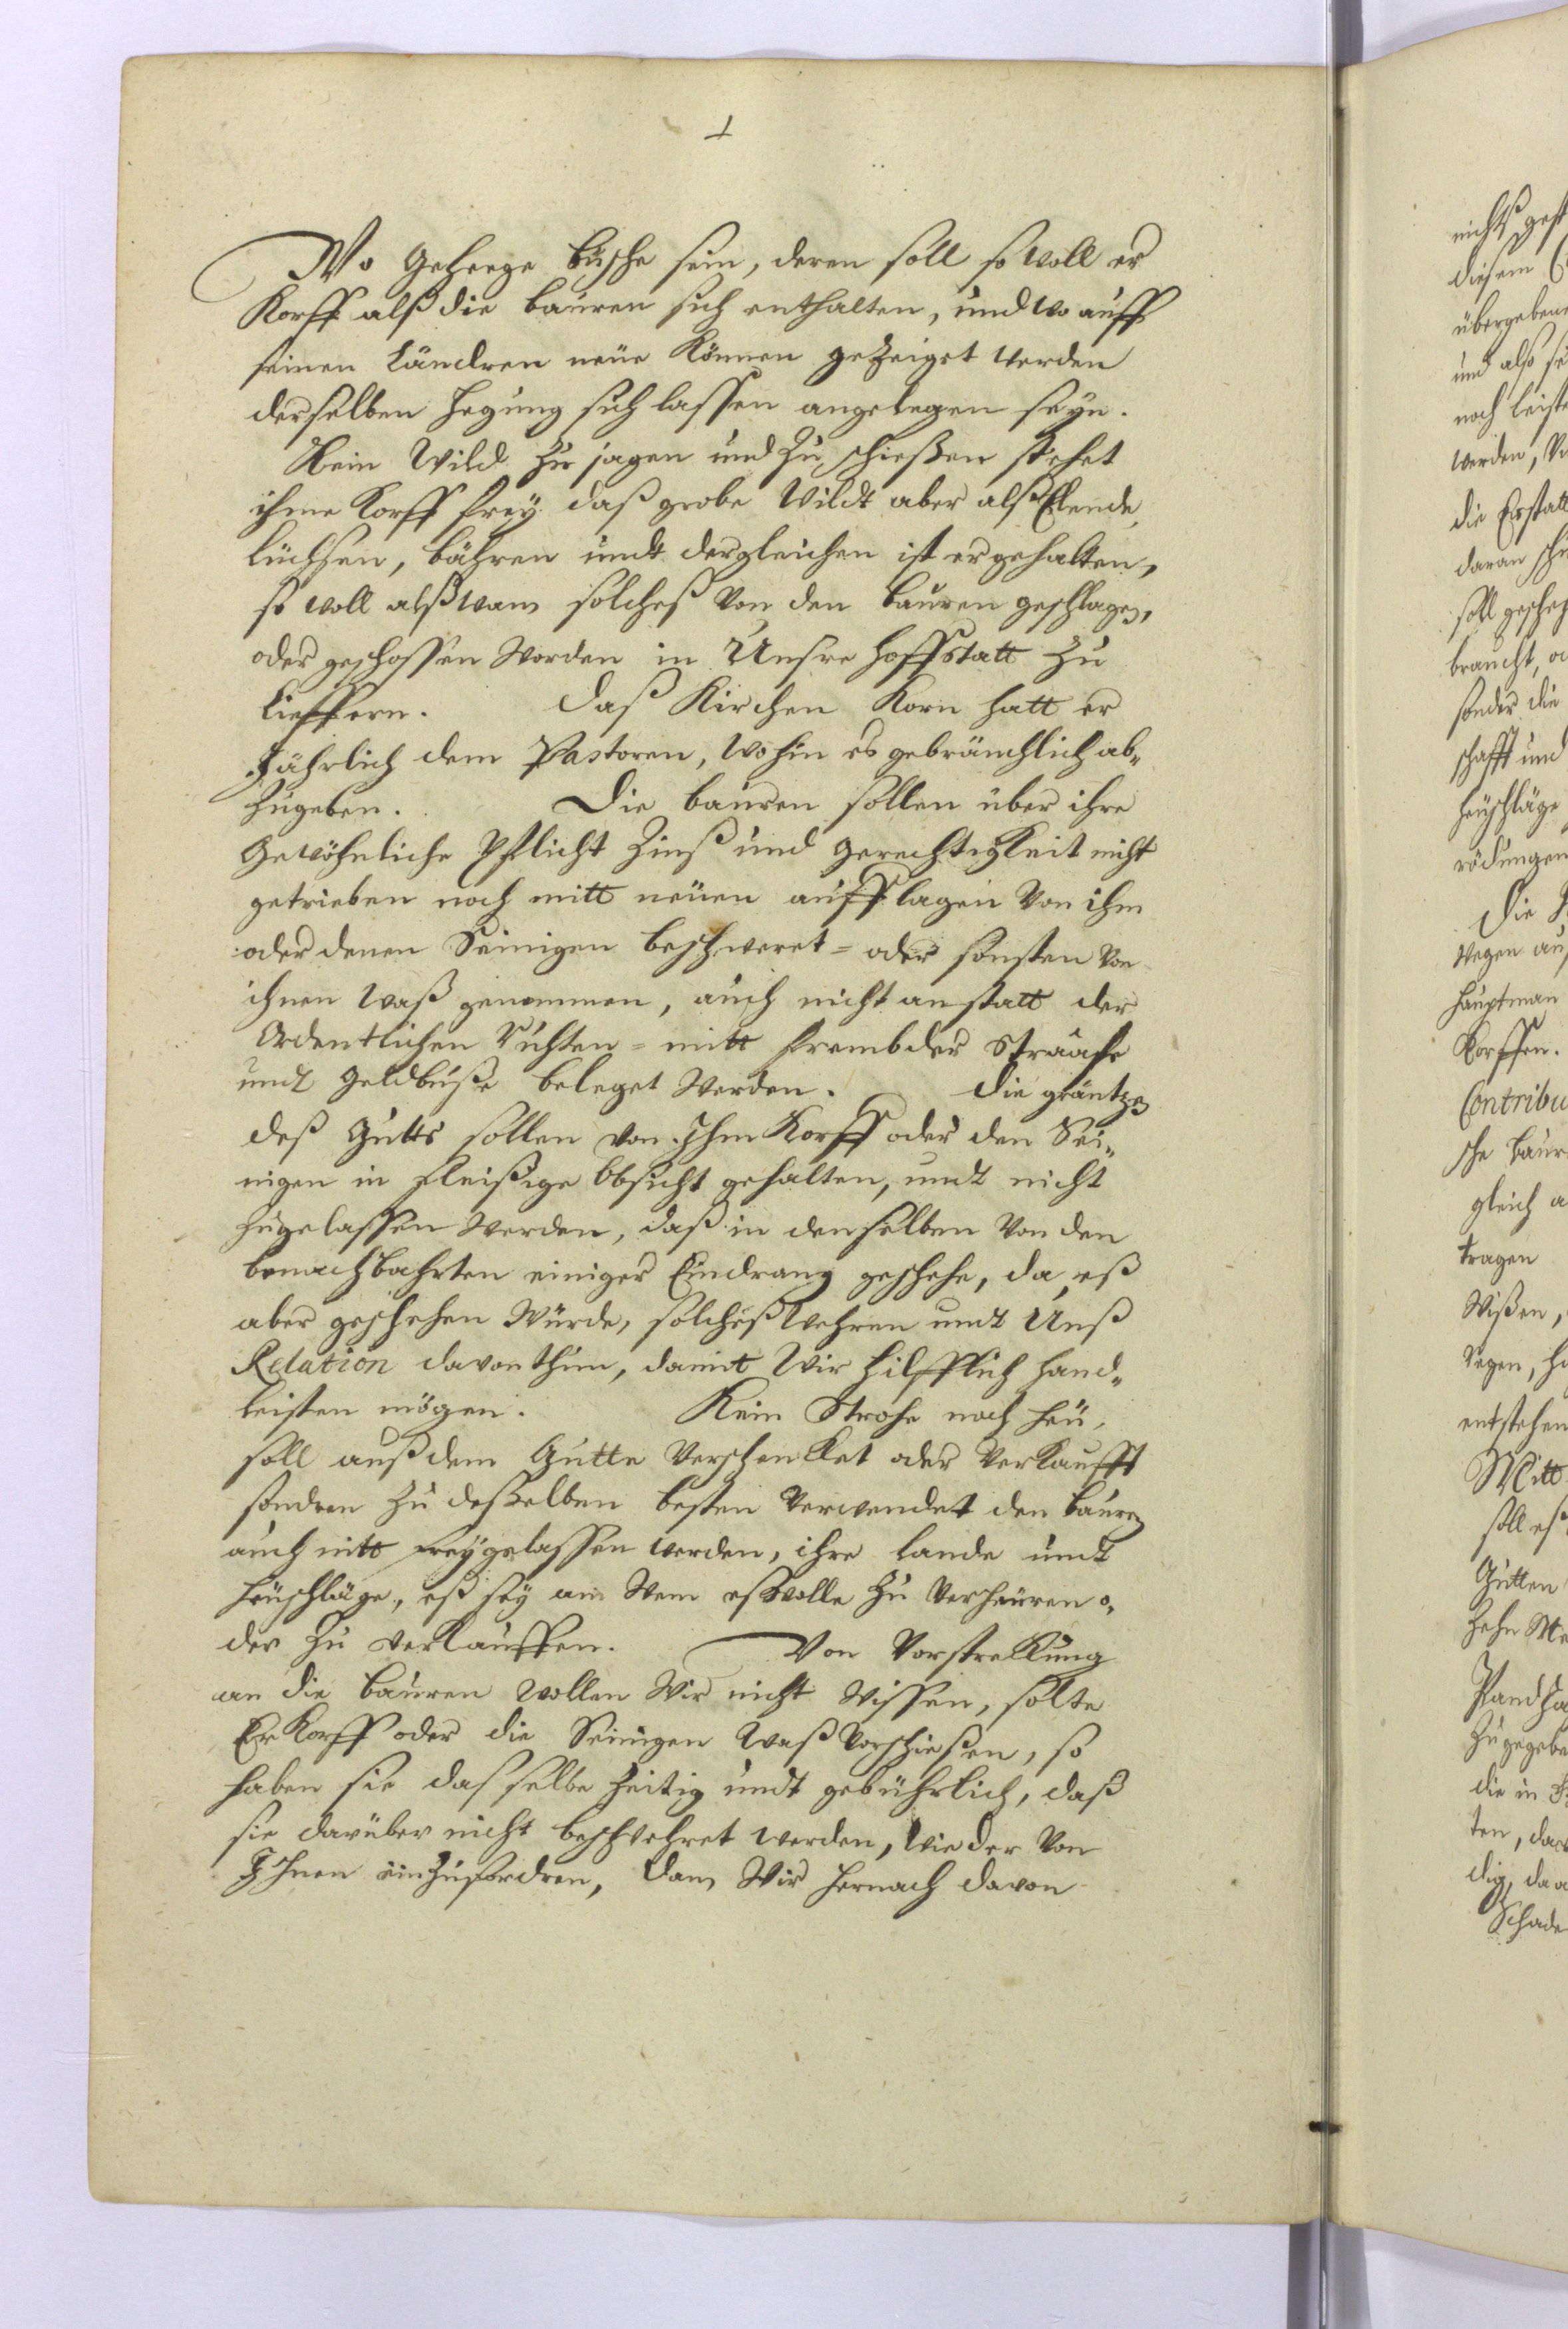 Wo Geheege büsche sein, deren soll so woll er
Korff alß die bauren sich enthalten, und wo auff
seinen Ländren neüe können gezeiget werden
derselben hegung sich lassen angelegen seyn.
Klein Wild zu jagen und zu schießen stehet
ihme Korff frey daß grobe Wildt aber alß Elende,
lüchsen, bähren undt dergleichen ist er gehalten,
so woll alß wan solcheß von den bauren geschlagen,
oder geschossen worden in Unsre hoffstatt zu
lieffern. Daß Kirchen Korn hatt er
Jährlich dem Pastoren, wohin es gebräuchlich ab„
zugeben. Die bauren sollen über ihre
Gewöhnliche Pflicht Zinß und gerechtigkeit nicht
getrieben noch mitt neüen aufflagen von ihm
oder denen Seinigen beschweret = oder sonsten von
ihnen waß genommen, auch nicht anstatt der
Ordentlichen Ruhten = mitt frembder Straafe
undt geldbuße beleget werden. die gräntzen
deß Gutts sollen von Ihm Korff oder den Sei„
nigen in fleißige obsicht gehalten, undt nicht
zugelassen werden, daß in denselben von den
benachbahrten einiger Eindrang geschehe, da eß
aber geschehen würde, solcheß wehren undt Unß
Relation davon thun, damit Wir hilfflich hand„
leisten mögen. Kein Strohe noch heü,
soll auß dem Gutte verschenket oder verkaufft
sondren zu deßelben besten verwendet den bauren
auch nitt freygelassen werden, ihre lande undt
heüschläge, eß sey an wem es wolle zu verheüren o„
der zu verkauffen. Von Vorstreckung
an die bauren wollen Wir nicht wissen, solte
Er Korff oder die Seinigen waß vorschießen, so
haben sie dasselbe zeitig undt gebührlich, daß
sie darüber nicht beschwehret werden, wieder von
Ihnen einzufordren, dan Wir hernach davon
nichtß
diesem
übergeben
und also
noch leist
werden,
die
daran
soll gescheh
braucht,
sonder die
schafft und
heüschläge
rödungen
Die
wegen
hauptman
Korffen.
Contribu
sche baur
gleich
tragen
wißen,
entstehen
Mitt
soll eß
Gutten
zehn
zugegebe
die in
ten,
dig, da
Schade